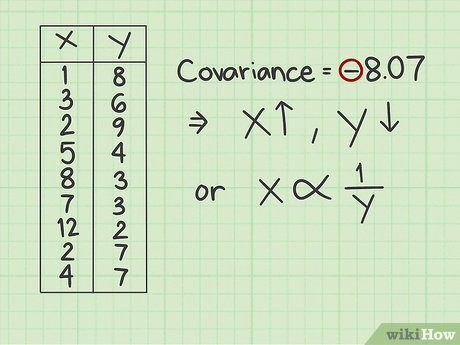 X Y
1 8
3 6
2 9
5 4
8 3
7 3
12 2
2 7
4 7
Covariance = -8.07
⇒ X↑, Y↓
or X ∝ 1/Y
wikiHow